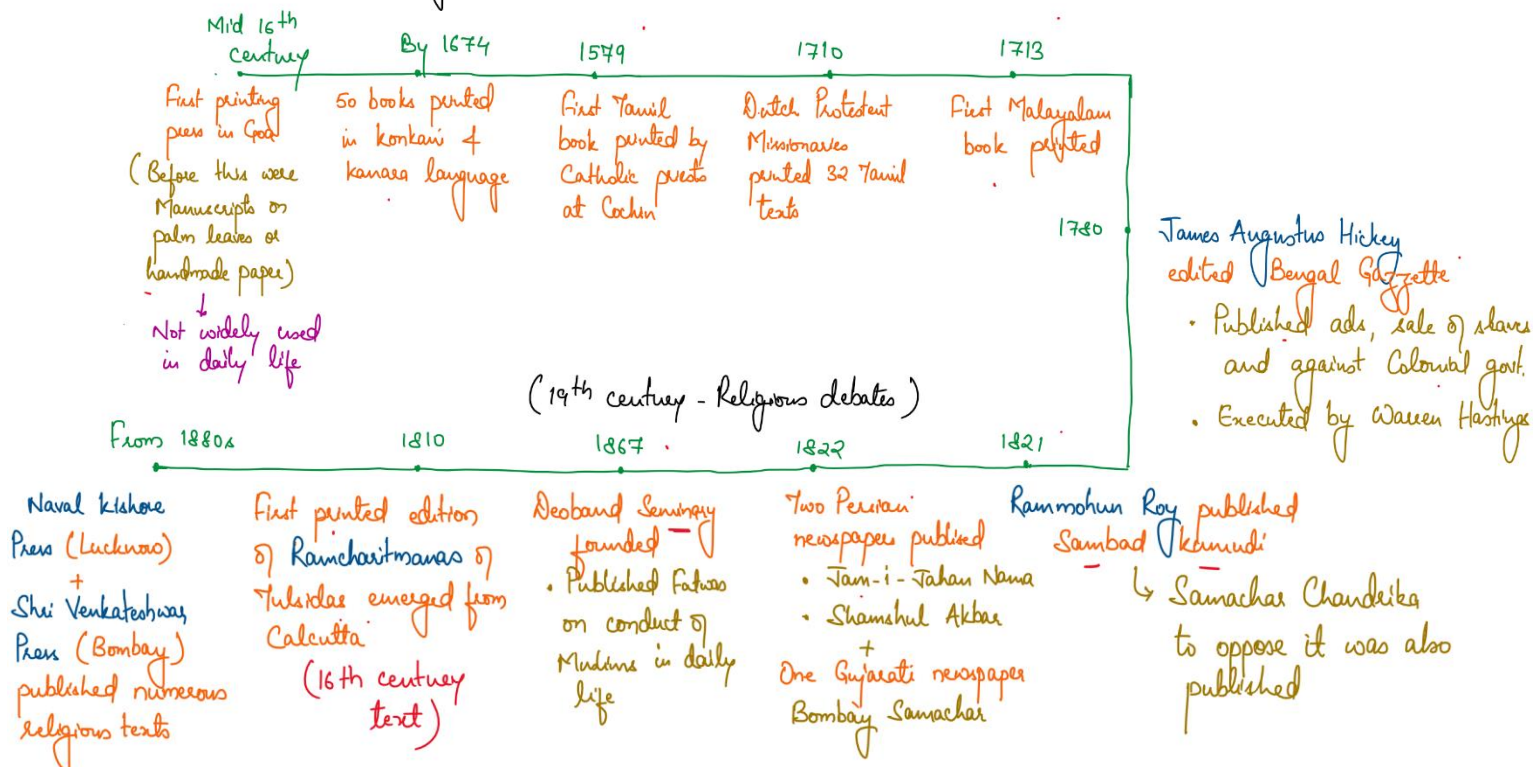 Mid 16th
century
By 1674
1579
1710
1713
First printing
press in Goa
(Before this were
Manuscripts on
palm leaves or
handmade paper)
↓
Not widely used
in daily life
50 books printed
in Konkani &
kanara language
First Tamil
book printed by
Catholic priests
at Cochin
Dutch Protestent
Missionaries
printed 32 Tamil
texts
First Malayalam
book printed
1780
James Augustus Hickey
edited Bengal Gazzette
• Published ads, sale of slaves
and against Colonial govt.
• Executed by Warren Hastings
(19th century - Religious debates)
From 1880s
1810
1867
1822
1821
Naval Kishore
Press (Lucknow)
+
Shri Venkateshwar
Press (Bombay)
published numerous
religious texts
First printed edition
of Ramcharitmanas of
Tulsidas emerged from
Calcutta
(16th century
text)
Deoband Seminary
founded
• Published Fatwas
on conduct of
Muslims in daily
life
Two Persian
newspapers publised
• Jam-i-Jahan Nama
• Shamshul Akbar
+
One Gujarati newspaper
Bombay Samachar
Rammohun Roy published
Sambad Kamudi
↳ Samachar Chandrika
to oppose it was also
published